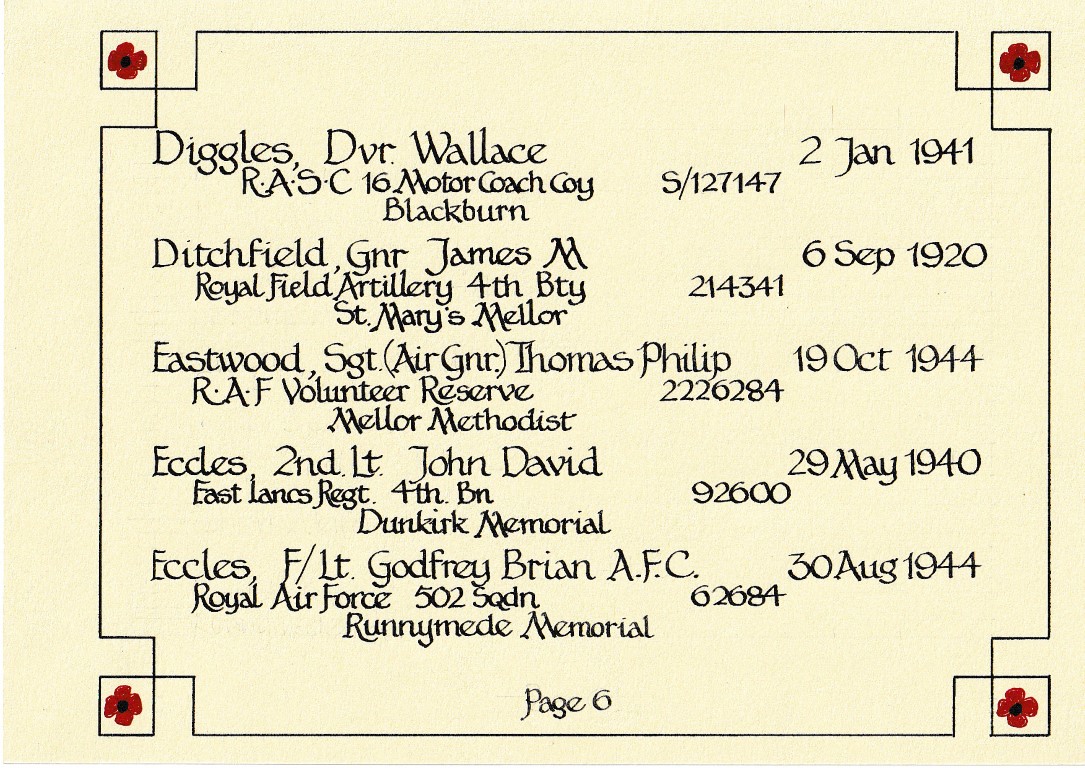 Diggles, Dvr. Wallace 2 Jan 1941
R.A.S.C 16 Motor Coach Coy S/127147
Blackburn
Ditchfield, Gnr James M 6 Sep 1920
Royal Field Artillery 4th Bty 214341
St. Mary's Mellor
Eastwood, Sgt. (Air Gnr.) Thomas Philip 19 Oct 1944
R.A.F Volunteer Reserve 2226284
Mellor Methodist
Eccles, 2nd. Lt. John David 29 May 1940
East Lancs Regt. 4th. Bn 92600
Dunkirk Memorial
Eccles, F/Lt. Godfrey Brian A.F.C. 30 Aug 1944
Royal Air Force 502 Sqdn 62684
Runnymede Memorial
Page 6